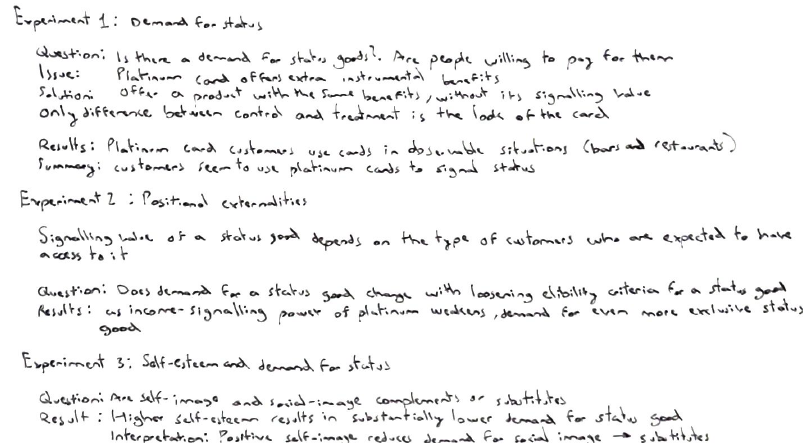 Experiment 1: Demand for status
Question: Is there a demand for status goods?. Are people willing to pay for them
Issue: Platinum card offers extra instrumental benefits
Solution: Offer a product with the same benefits, without its signalling value
Only difference between control and treatment is the look of the card
Results: Platinum card customers use cards in observable situations (bars and restaurants)
Summary: customers seem to use platinum cards to signal status
Experiment 2: Positional externalities
Signalling value of a status good depends on the type of customers who are expected to have
access to it
Question: Does demand for a status good change with loosening elibility criteria for a status good
Results: as income-signalling power of platinum weakens, demand for even more exclusive status
good
Experiment 3: Self-esteem and demand for status
Question: Are self-image and social-image complements or substitutes
Result: Higher self-esteem results in substantially lower demand for status good
Interpretation: Positive self-image reduces demand for social image → substitutes